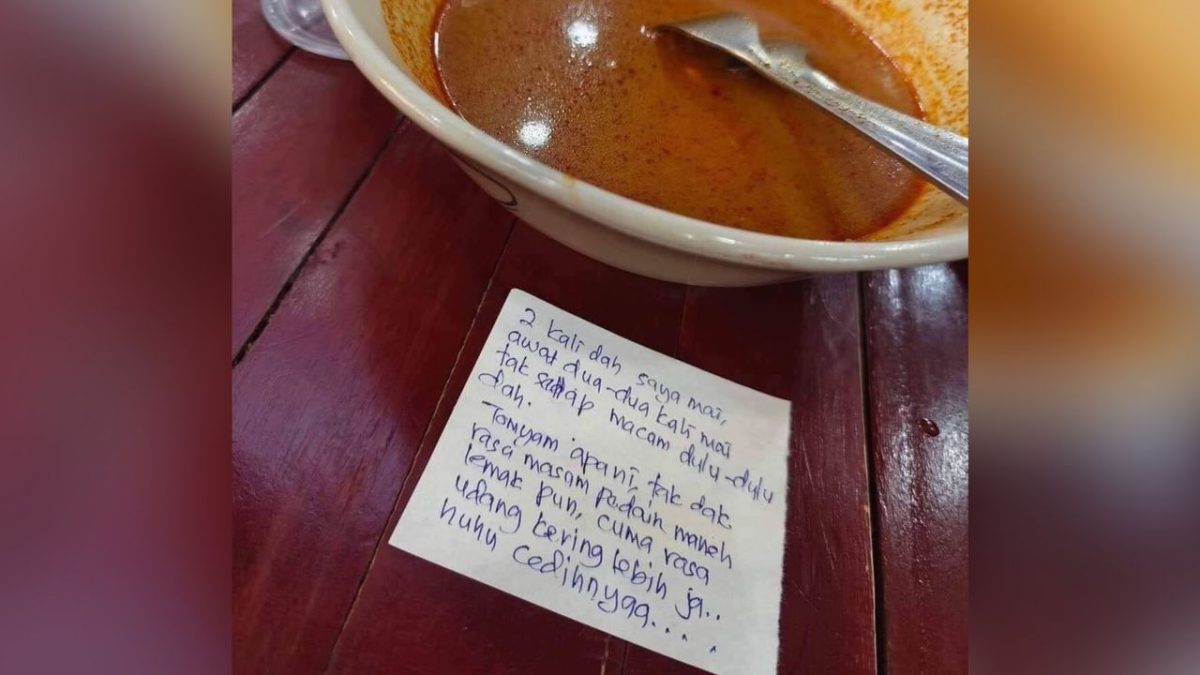 2 kali dah saya mai,
awat dua-dua kali mai
tak sedap macam dulu-dulu
dah.
Tomyam apa ni, tak dak
rasa masam pedaih maneh
lemak pun, cuma rasa
udang kering lebih ja..
huhu cedihnyaa....